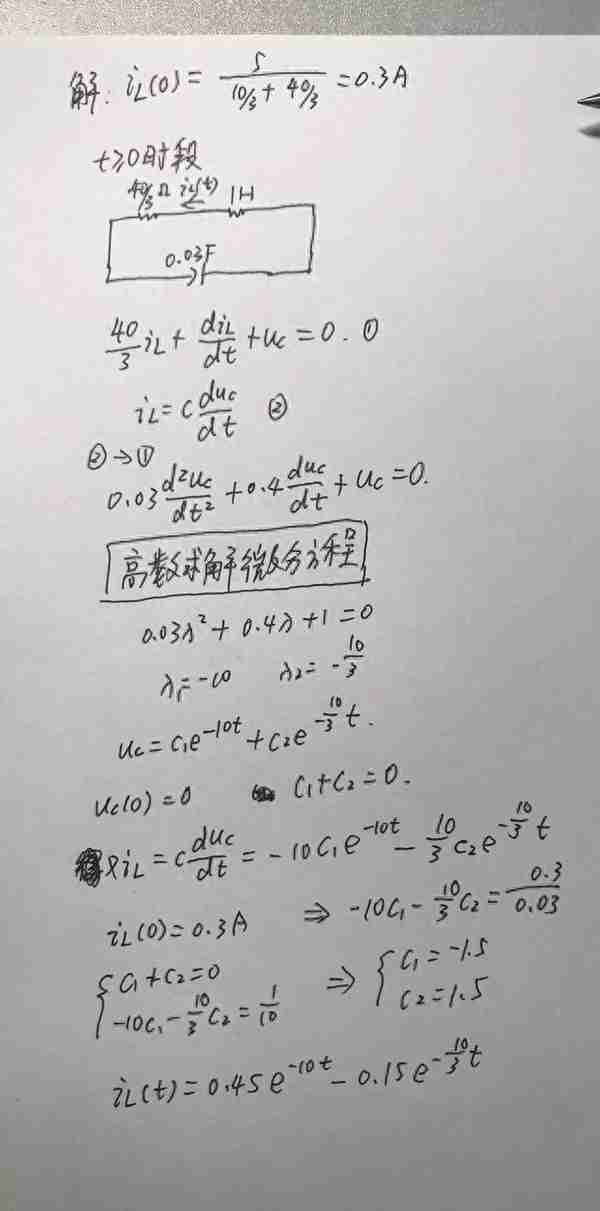 解: iL(0) = 5/(10/3 + 40/3) = 0.3A
t≥0时段
40/3 Ω iL(t) 1H
0.03F
40/3 iL + diL/dt + uc = 0. ①
iL = C duc/dt ②
②→①
0.03 d²uc/dt² + 0.4 duc/dt + uc = 0.
高数求解微分方程
0.03λ² + 0.4λ + 1 = 0
λ₁ = -10 λ₂ = -10/3
uc = C₁e^(-10t) + C₂e^(-10/3 t).
uc(0) = 0 C₁ + C₂ = 0.
又iL = C duc/dt = -10C₁e^(-10t) - 10/3 C₂e^(-10/3 t)
iL(0) = 0.3A ⇒ -10C₁ - 10/3 C₂ = 0.3/0.03
{ C₁ + C₂ = 0 ⇒ { C₁ = -1.5
-10C₁ - 10/3 C₂ = 1/10 C₂ = 1.5
iL(t) = 0.45e^(-10t) - 0.15e^(-10/3 t)